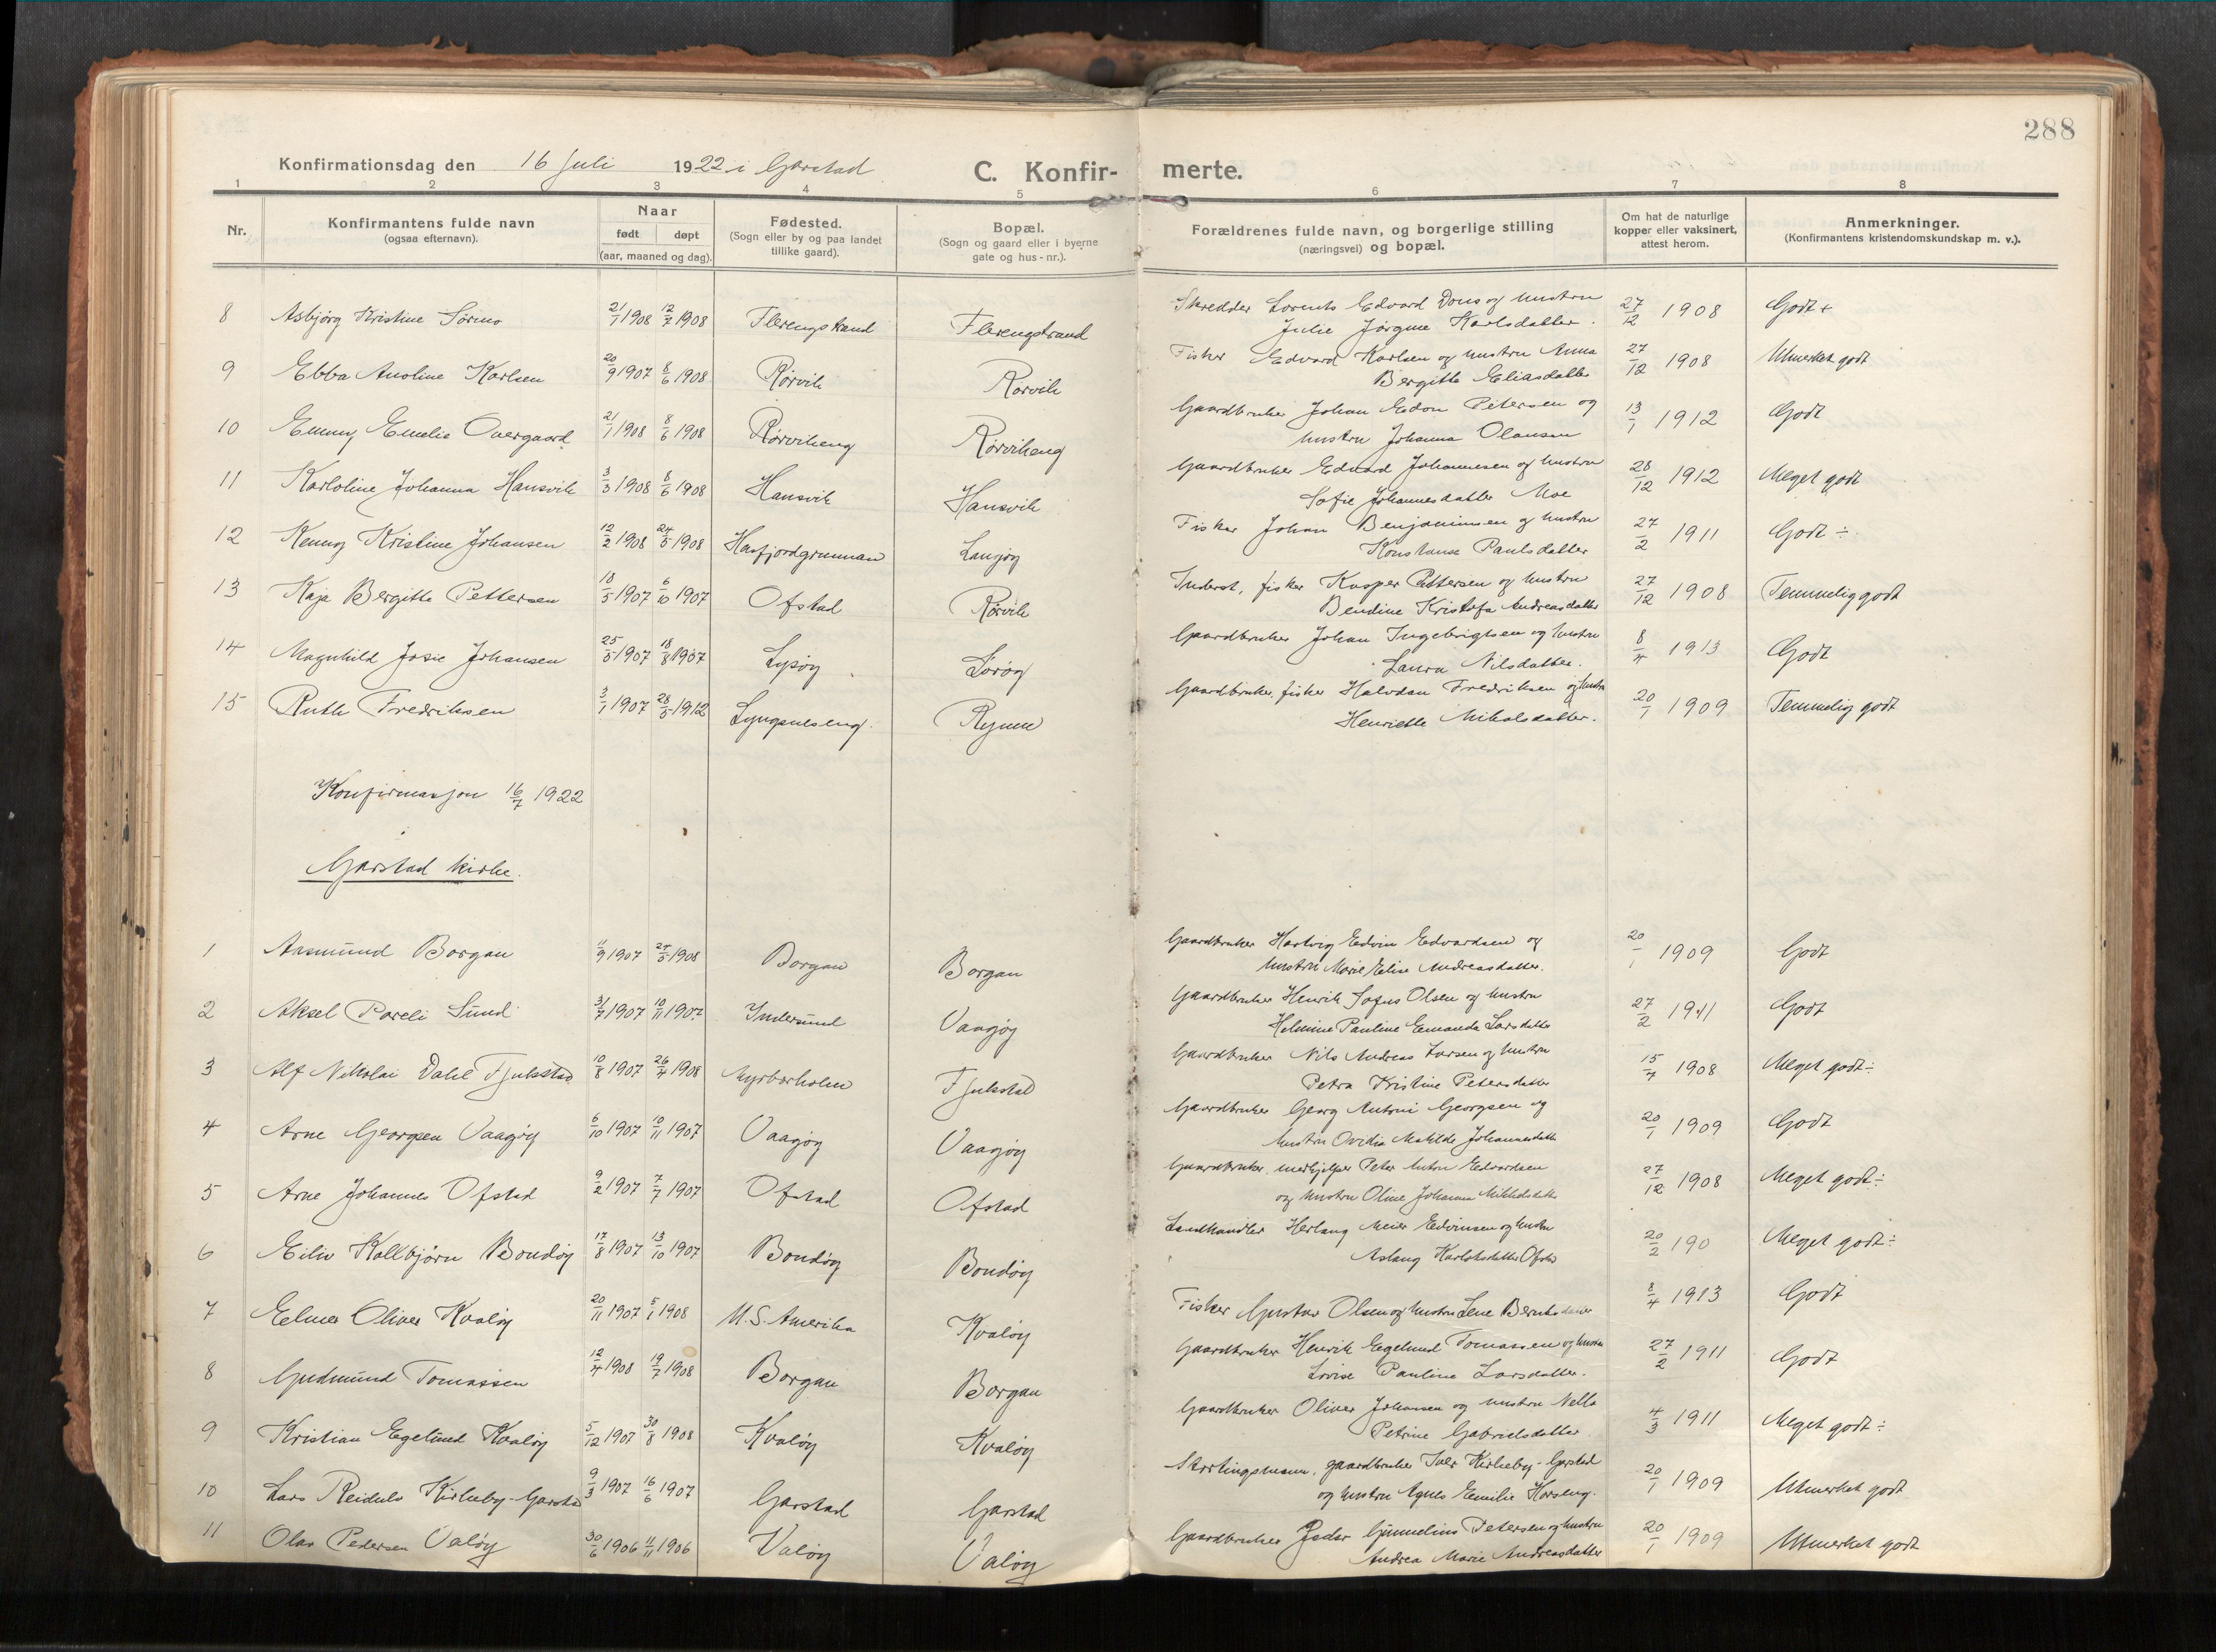 288
Konfirmationsdag den 16 Juli 1922 i Garstad
C. Konfir- merte.
1 2 3 4 5 6 7 8
Nr.
Konfirmantens fulde navn
(ogsaa efternavn).
Naar
født døpt
(aar, maaned og dag).
Fødested.
(Sogn eller by og paa landet
tillike gaard).
Bopæl.
(Sogn og gaard eller i byerne
gate og hus-nr.).
Forældrenes fulde navn, og borgerlige stilling
(næringsvei) og bopæl.
Om hat de naturlige
kopper eller vaksinert,
attest herom.
Anmerkninger.
(Konfirmantens kristendomskundskap m. v.).
8 Asbjørg Kristine Sørmo 21/1 1908 12/7 1908 Flerengstrand Flerengstrand Skredder Lorents Edvard Dons og hustru 27/12 1908 Godt +
Julie Jørgine Karlsdatter.
9 Ebba Anoline Karlsen 20/9 1907 8/6 1908 Rørvik Rørvik Fisker Edvard Karlsen og hustru Anna 27/12 1908 Utmerket godt
Bergitte Eliasdatter
10 Emmy Emelie Overgaard 21/1 1908 8/6 1908 Rørvikeng Rørvikeng Gaardbruker Johan Edon Petersen og 13/1 1912 Godt
hustru Johanna Olausen
11 Karloline Johanna Hansvik 3/3 1908 8/6 1908 Hansvik Hansvik Gaardbruker Edvard Johannesen og hustru 28/12 1912 Meget godt
Sofie Johannesdatter Moe
12 Kenny Kristine Johansen 12/2 1908 24/5 1908 Havfjordgrunnan Langøy Fisker Johan Benjaminsen og hustru 27/2 1911 Godt ÷
Konstanse Paulsdatter
13 Kaja Bergitte Pettersen 18/5 1907 6/10 1907 Ofstad Rørvik Inderst, fisker Kasper Pettersen og hustru 27/12 1908 Temmelig godt
Bendine Kristofa Andreasdatter
14 Magnhild Josie Johansen 25/5 1907 18/8 1907 Lysøy Sørøy Gaardbruker Johan Ingebrigtsen og hustru 8/4 1913 Godt
Laura Nilsdatter.
15 Ruth Fredriksen 3/1 1907 28/5 1912 Lyngsneseng. Rynne Gaardbruker, fisker Halvdan Fredriksen og hustru 20/1 1909 Temmelig godt
Henriette Mikalsdatter.
Konfirmasjon 16/7 1922
Garstad kirke.
1 Aasmund Borgan 11/9 1907 24/5 1908 Borgan Borgan Gaardbruker Hartvig Edvin Edvardsen og 20/1 1909 Godt
hustru Marie Elise Andreasdatter.
2 Aksel Pareli Sund 31/7 1907 10/11 1907 Indersund Vaagøy Gaardbruker Henrik Sofus Olsen og hustru 27/2 1911 Godt
Helmine Pauline Emanda Larsdatter
3 Alf Nikolai Dahl Fjukstad 10/8 1907 26/4 1908 Myrbærholm Fjukstad Gaardbruker Nils Andreas Larsen og hustru 15/7 1908 Meget godt ÷
Petra Kristine Petersdatter
4 Arne Georgsen Vaagøy 6/10 1907 10/11 1907 Vaagøy Vaagøy Gaardbruker Georg Antoni Georgsen og 20/1 1909 Godt
hustru Ovidia Matilde Johannesdatter
5 Arne Johannes Ofstad 9/2 1907 7/7 1907 Ofstad Ofstad Gaardbruker, medhjelper Peter Anton Edvardsen 27/12 1908 Meget godt ÷
og hustru Oline Johanna Mikkelsdatter
6 Eiliv Kollbjørn Bondøy 17/8 1907 13/10 1907 Bondøy Bondøy Landhandler Herlaug Meier Edvinsen og hustru 20/2 190 Meget godt ÷
Aslaug Karlotsdatter Ofstad
7 Eelmer Oliver Kvaløy 20/11 1907 5/1 1908 U. S. Amerika Kvaløy Fisker Gustav Olsen og hustru Lene Berntsdatter 8/4 1913 Godt
8 Gudmund Tomassen 12/4 1908 19/7 1908 Borgan Borgan Gaardbruker Henrik Egelund Tomassen og hustru 27/2 1911 Godt
Lovise Pauline Larsdatter.
9 Kristian Egelund Kvaløy 5/12 1907 30/8 1908 Kvaløy Kvaløy Gaardbruker Oliver Johansen og hustru Nella 4/3 1911 Meget godt ÷
Petrine Gabrielsdatter
10 Lars Reidulv Kirkeby-Garstad 9/3 1907 16/6 1907 Garstad Garstad Stortingsmann, gaardbruker Iver Kirkeby-Garstad 20/1 1909 Utmerket godt
og hustru Agnes Emilie Horseng.
11 Olav Pedersen Valøy 30/6 1906 11/11 1906 Valøy Valøy Gaardbruker Peder Gunnelius Petersen og hustru 20/1 1909 Utmerket godt
Andrea Marie Andreasdatter